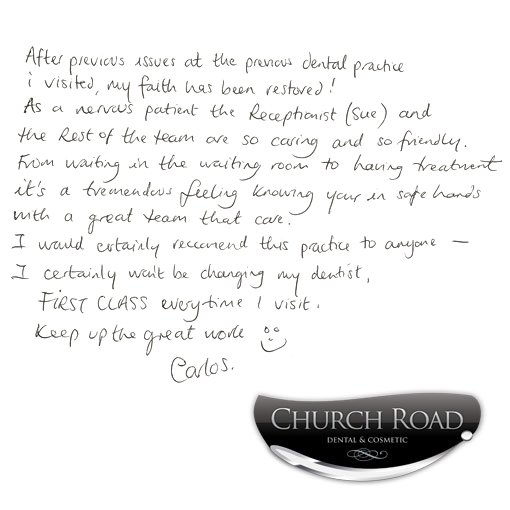 After previous issues at the previous dental practice
i visited, my faith has been restored!
As a nervous patient the Receptionist (Sue) and
the Rest of the team are so caring and so friendly.
From waiting in the waiting room to having treatment
it's a tremendous feeling knowing your in safe hands
with a great team that care.
I would certainly reccomend this practice to anyone —
I certainly won't be changing my dentist,
FIRST CLASS everytime I visit.
Keep up the great work
Carlos.
CHURCH ROAD
DENTAL & COSMETIC